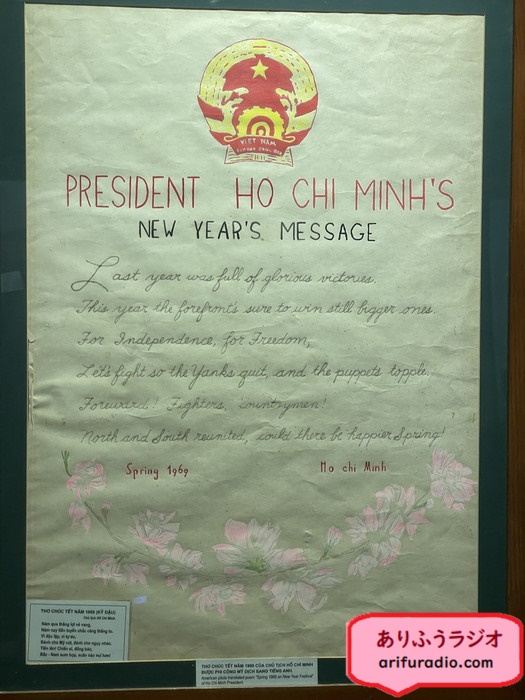 VIET NAM
PRESIDENT HO CHI MINH'S
NEW YEAR'S MESSAGE
Last year was full of glorious victories.
This year the forefront's sure to win still bigger ones.
For Independence, for Freedom,
Let's fight so the Yanks quit, and the puppets topple.
Foreward! Fighters, countrymen!
North and South reunited, could there be happier Spring!
Spring 1969
Ho chi Minh
THƠ CHÚC TẾT NĂM 1969 (KỶ DẬU)
Chủ tịch Hồ Chí Minh
Năm qua thắng lợi vẻ vang,
Năm nay tiền tuyến chắc càng thắng to.
Vì độc lập, vì tự do,
Đánh cho Mỹ cút, đánh cho ngụy nhào.
Tiến lên! Chiến sĩ, đồng bào,
Bắc - Nam sum họp, xuân nào vui hơn!
THƠ CHÚC TẾT NĂM 1969 CỦA CHỦ TỊCH HỒ CHÍ MINH
ĐƯỢC PHI CÔNG MỸ DỊCH SANG TIẾNG ANH.
American pilots translated poem "Spring 1969 on New Year Festival"
of Ho Chi Minh President
ありふうラジオ
arifuradio.com